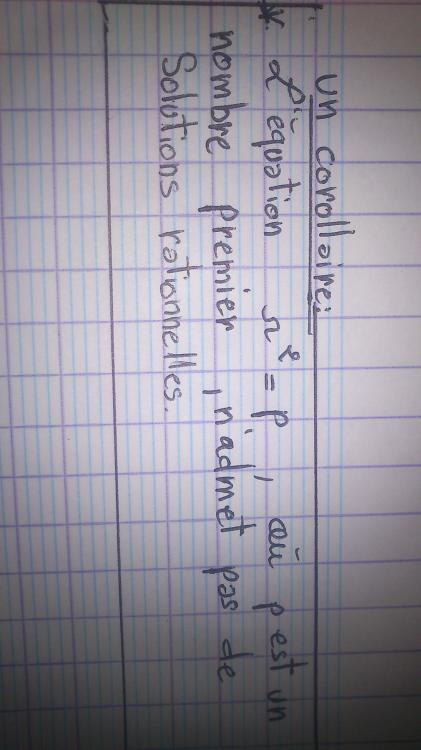 un corollaire:
* L'équation r² = p, où p est un
nombre premier, n'admet pas de
Solutions rationnelles.